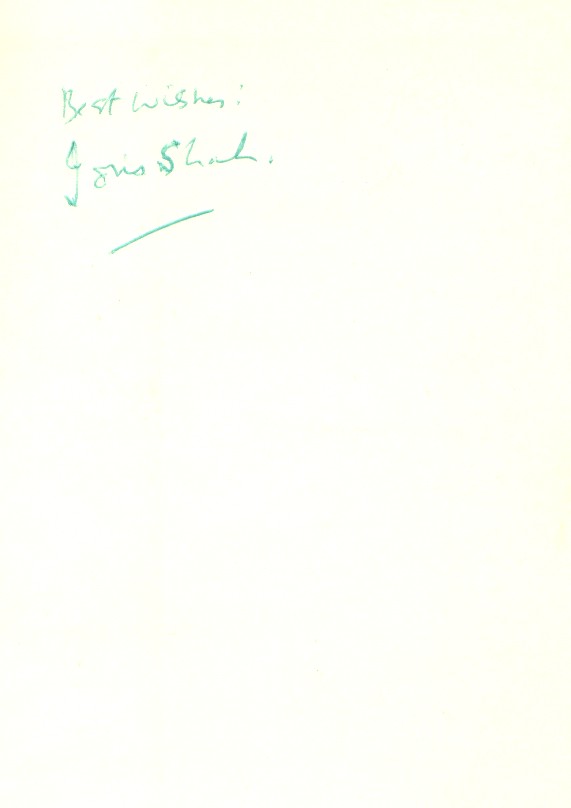 Best wishes:
Idries Shah.